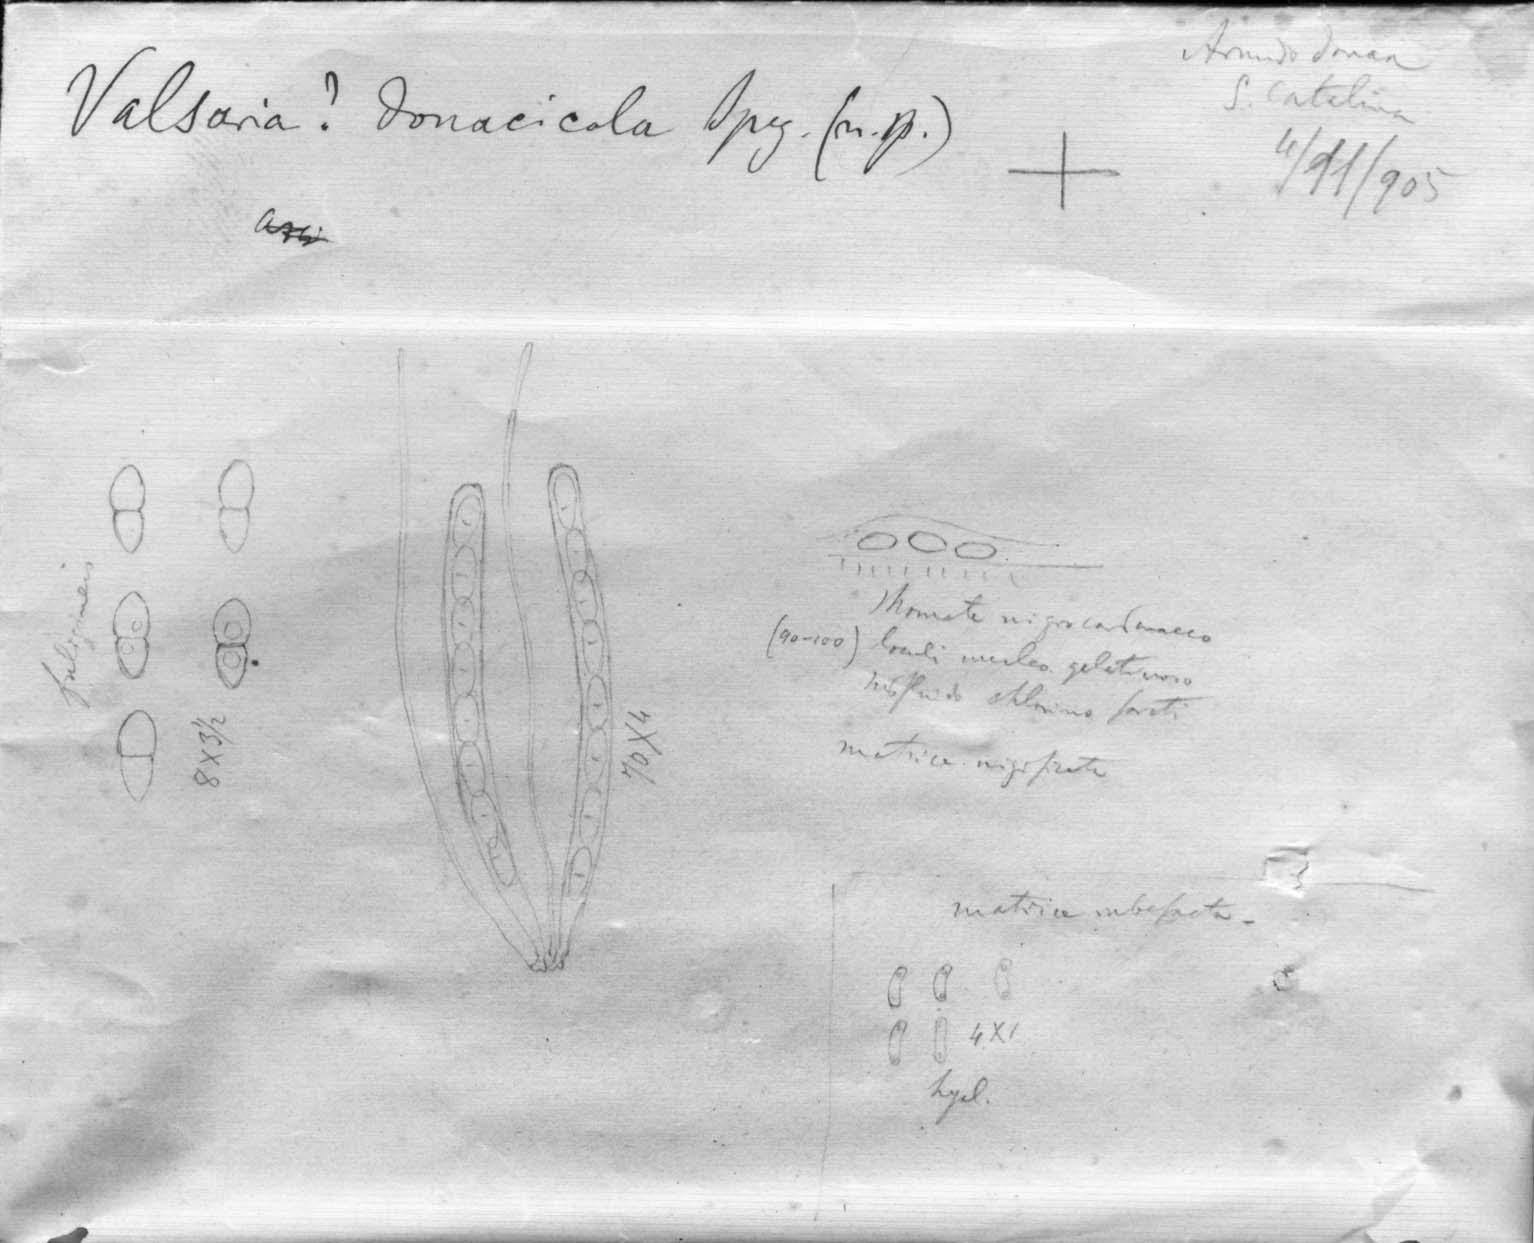 Valsaria? donacicola Speg. (n. sp.)
Arundo donax
S. Catalina
4/11/905
fuligineis
8X3½
70X4
Stromate nigrocarbonaceo
(90-100) loculi nucleo gelatinoso
subfluido chlorino farcti
matrice nigrificata
matrice rubefacta -
4X1
hyal.